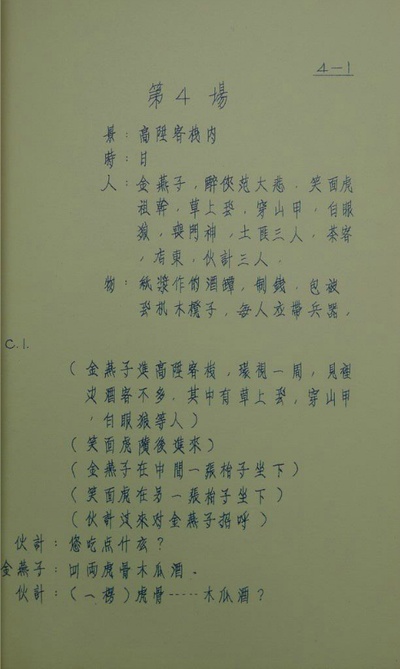 4-1
第4場
景：高陞客栈内
時：日
人：金燕子，醉侠范大悲，笑面虎
祖幹，草上飛，穿山甲，白眼
狼，喪門神，土匪三人，茶客
，店東，伙計三人，
物：紙漿作的酒罎，制錢，包袱
飛机木櫈子，每人应帶兵器，
C.1.
（金燕子進高陞客栈，環視一周，見裡
边酒客不多，其中有草上飛，穿山甲
，白眼狼等人）
（笑面虎隨後進來）
（金燕子在中間一張枱子坐下）
（笑面虎在另一張枱子坐下）
（伙計过來对金燕子招呼）
伙計：您吃点什么？
金燕子：四两虎骨木瓜酒．
伙計：（一楞）虎骨……木瓜酒？